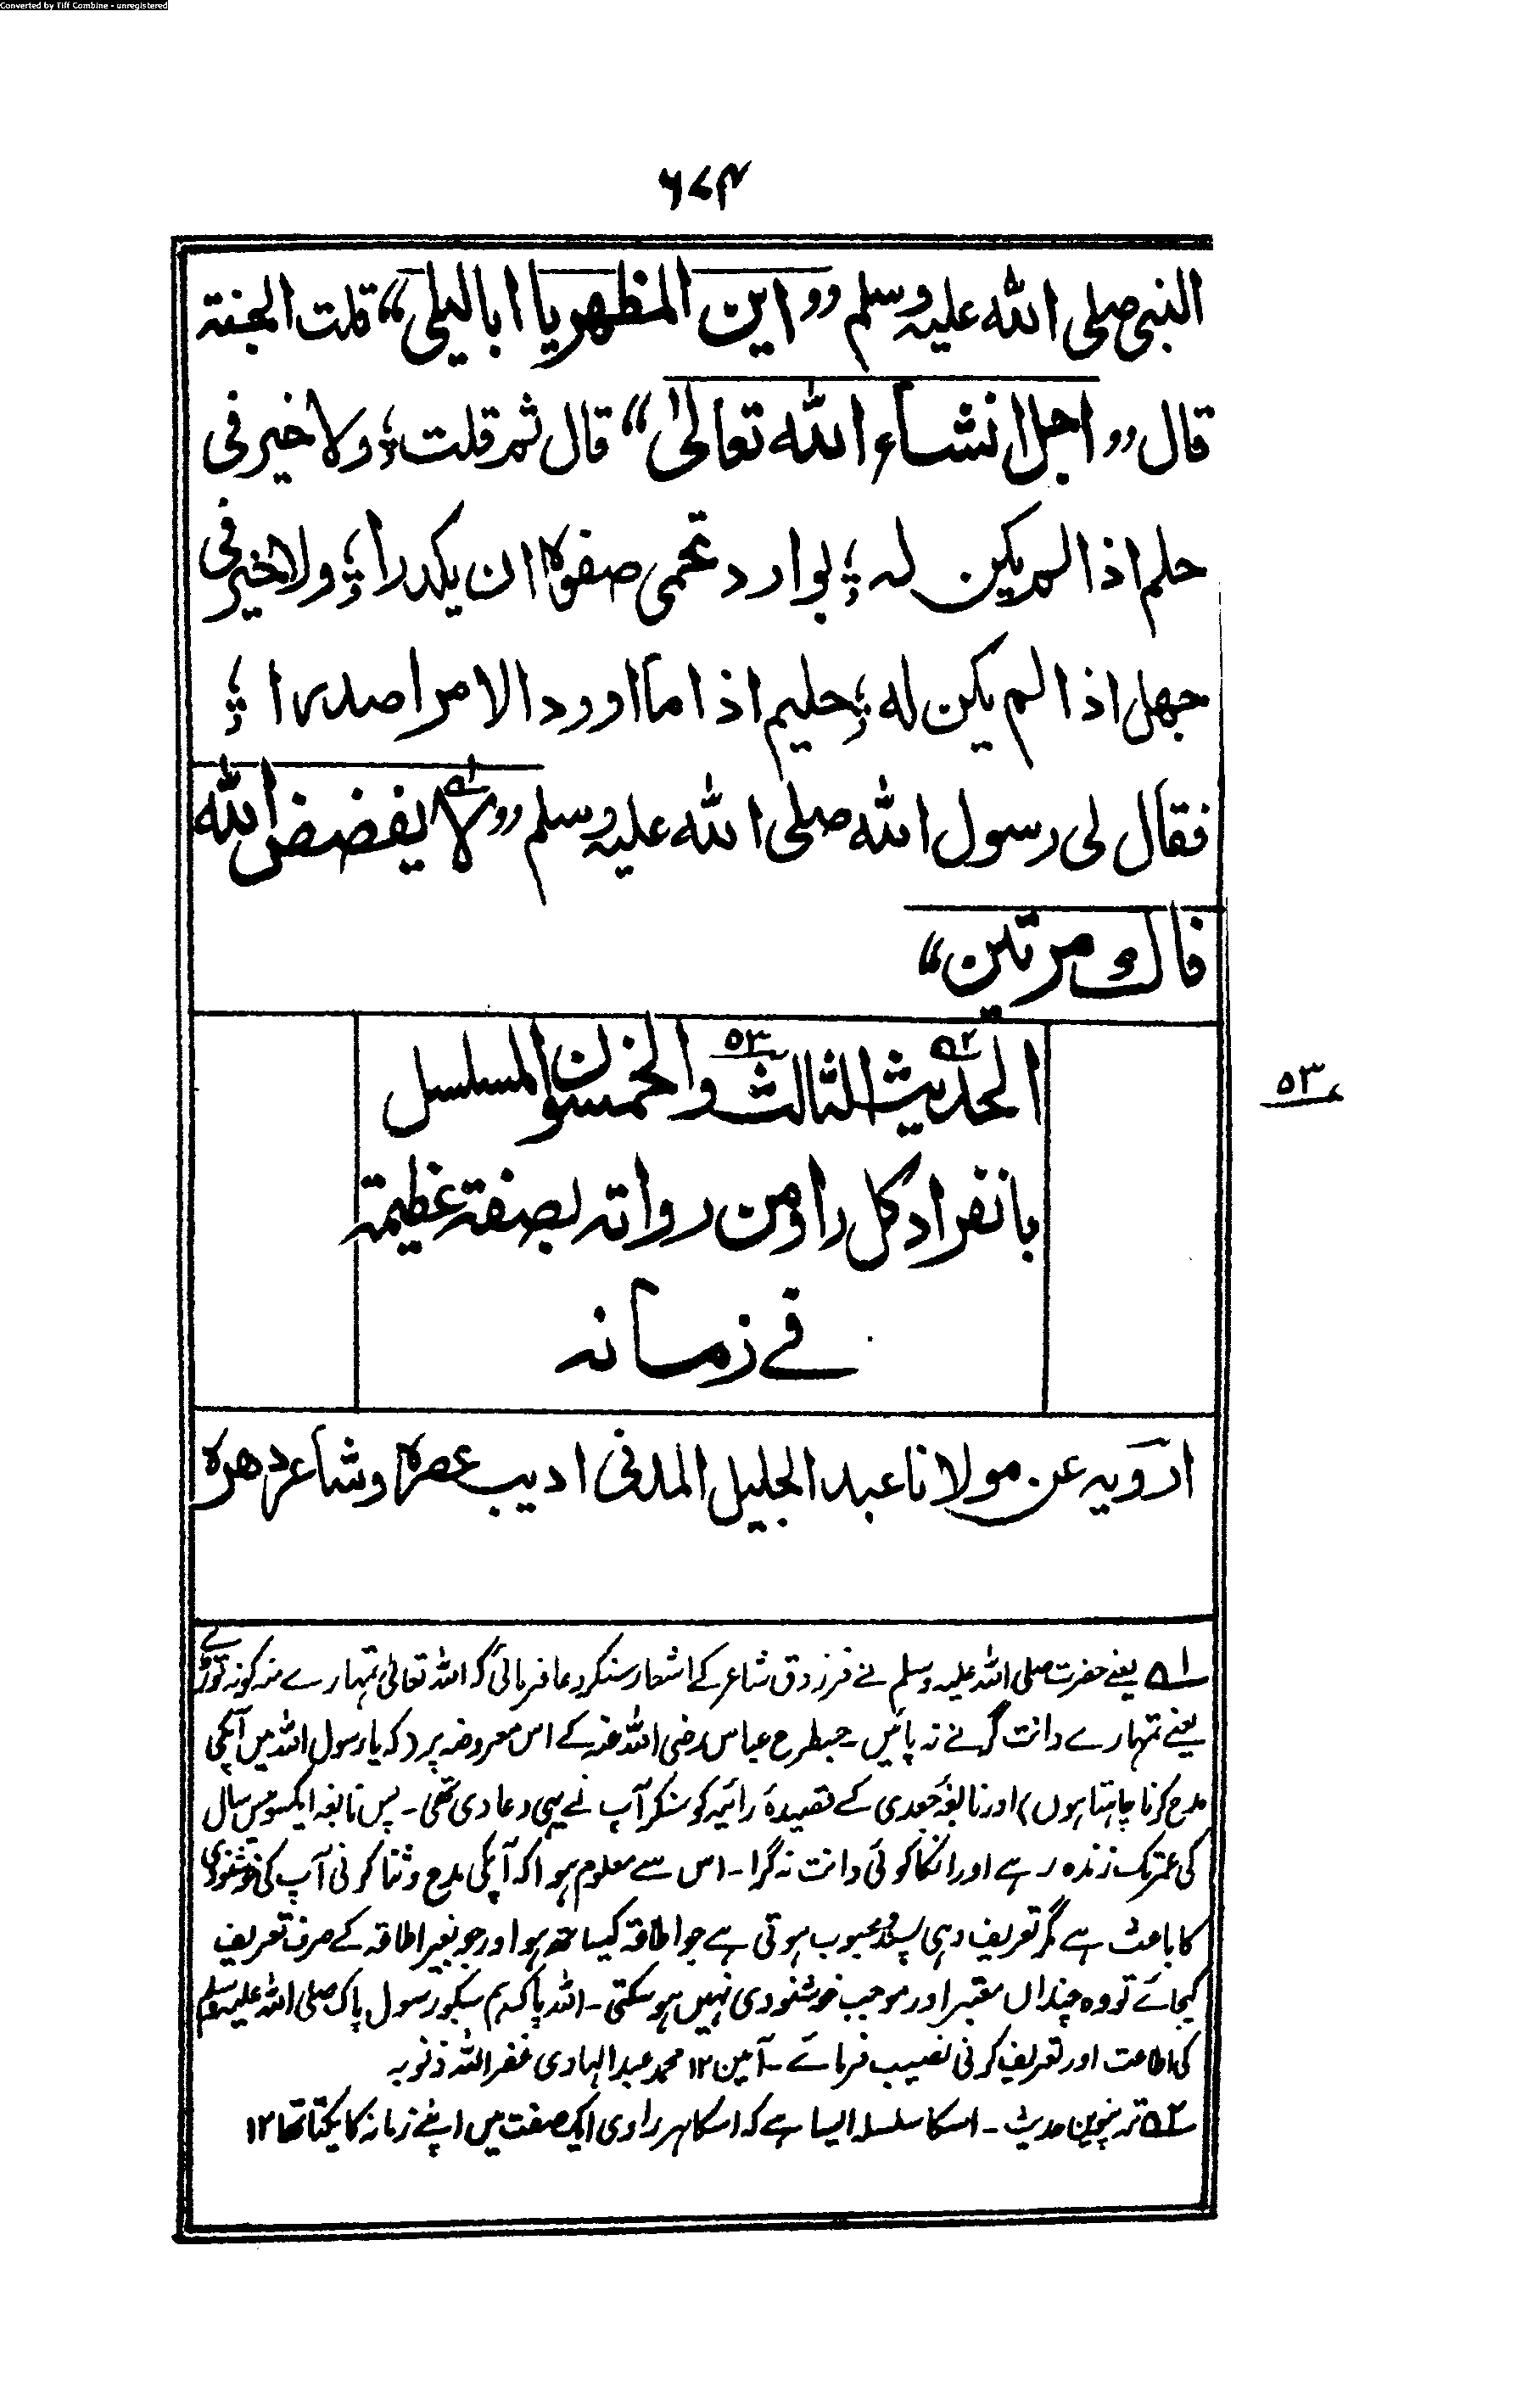 Converted by Tiff Combine - unregistered
۶۷۴
النبی صلی اللہ علیہ وسلم ’’این المظھر یا ابا لیلی‘‘ قلت الجنۃ
قال ’’اجل انشاء اللہ تعالیٰ‘‘ قال ثم قلت ؛ ولا خیر فی
حلم اذا لم یکن لہ ؛ بوادر تحمی صفوہ ان یکدرا ؛ ولا خیر فی
جھل اذا لم یکن لہ ؛ حلیم اذا ما اورد الامر اصدرا ؛
فقال لی رسول اللہ صلی اللہ علیہ وسلم ’’لا۱ یفضض اللہ
فاک مرتین‘‘
الحدیث۲ الثالث۵۳ والخمسون المسلسل
۵۳
بانفراد کل راو من رواتہ بصفۃ عظیمۃ
فے زمانہ
ارویہ عن مولانا عبد الجلیل المدنی ادیب عصرہ وشاعر دھرہ
۱ یعنے حضرت صلی اللہ علیہ وسلم نے فرزدق شاعر کے اشعار سنکر دعا فرمائی کہ اللہ تعالیٰ تمہارے منہ کو نہ توڑے
یعنے تمہارے دانت گرنے نہ پائیں ۔ جسطرح عباس رضی اللہ عنہ کے اس معروضہ پر (کہ یا رسول اللہ میں آپکی
مدح کرنا چاہتا ہوں) اور نابغۂ جعدی کے قصیدۂ رائیہ کو سنکر آپ نے یہی دعا دی تھی ۔ پس نابغہ ایکسو بیس سال
کی عمر تک زندہ رہے اور انکا کوئی دانت نہ گرا ۔ اس سے معلوم ہوا کہ آپکی مدح و ثنا کرنی آپ کی خوشنودی
کا باعث ہے مگر تعریف وہی پسند و محبوب ہوتی ہے جو اطاقہ کیساتھ ہو اور جو بغیر اطاقہ کے صرف تعریف
کیجائے تو وہ چنداں معتبر اور موجب خوشنودی نہیں ہوسکتی ۔ اللہ پاک ہم سبکو رسول پاک صلی اللہ علیہ وسلم
کی اطاعت اور تعریف کرنی نصیب فرمائے ۔ آمین ۱۲ محمد عبد الہادی غفر اللہ ذنوبہ
۲ ترپنوین حدیث ۔ اسکا سلسلہ ایسا ہے کہ اسکا ہر راوی ایک صفت میں اپنے زمانہ کا یکتا تھا ۱۲